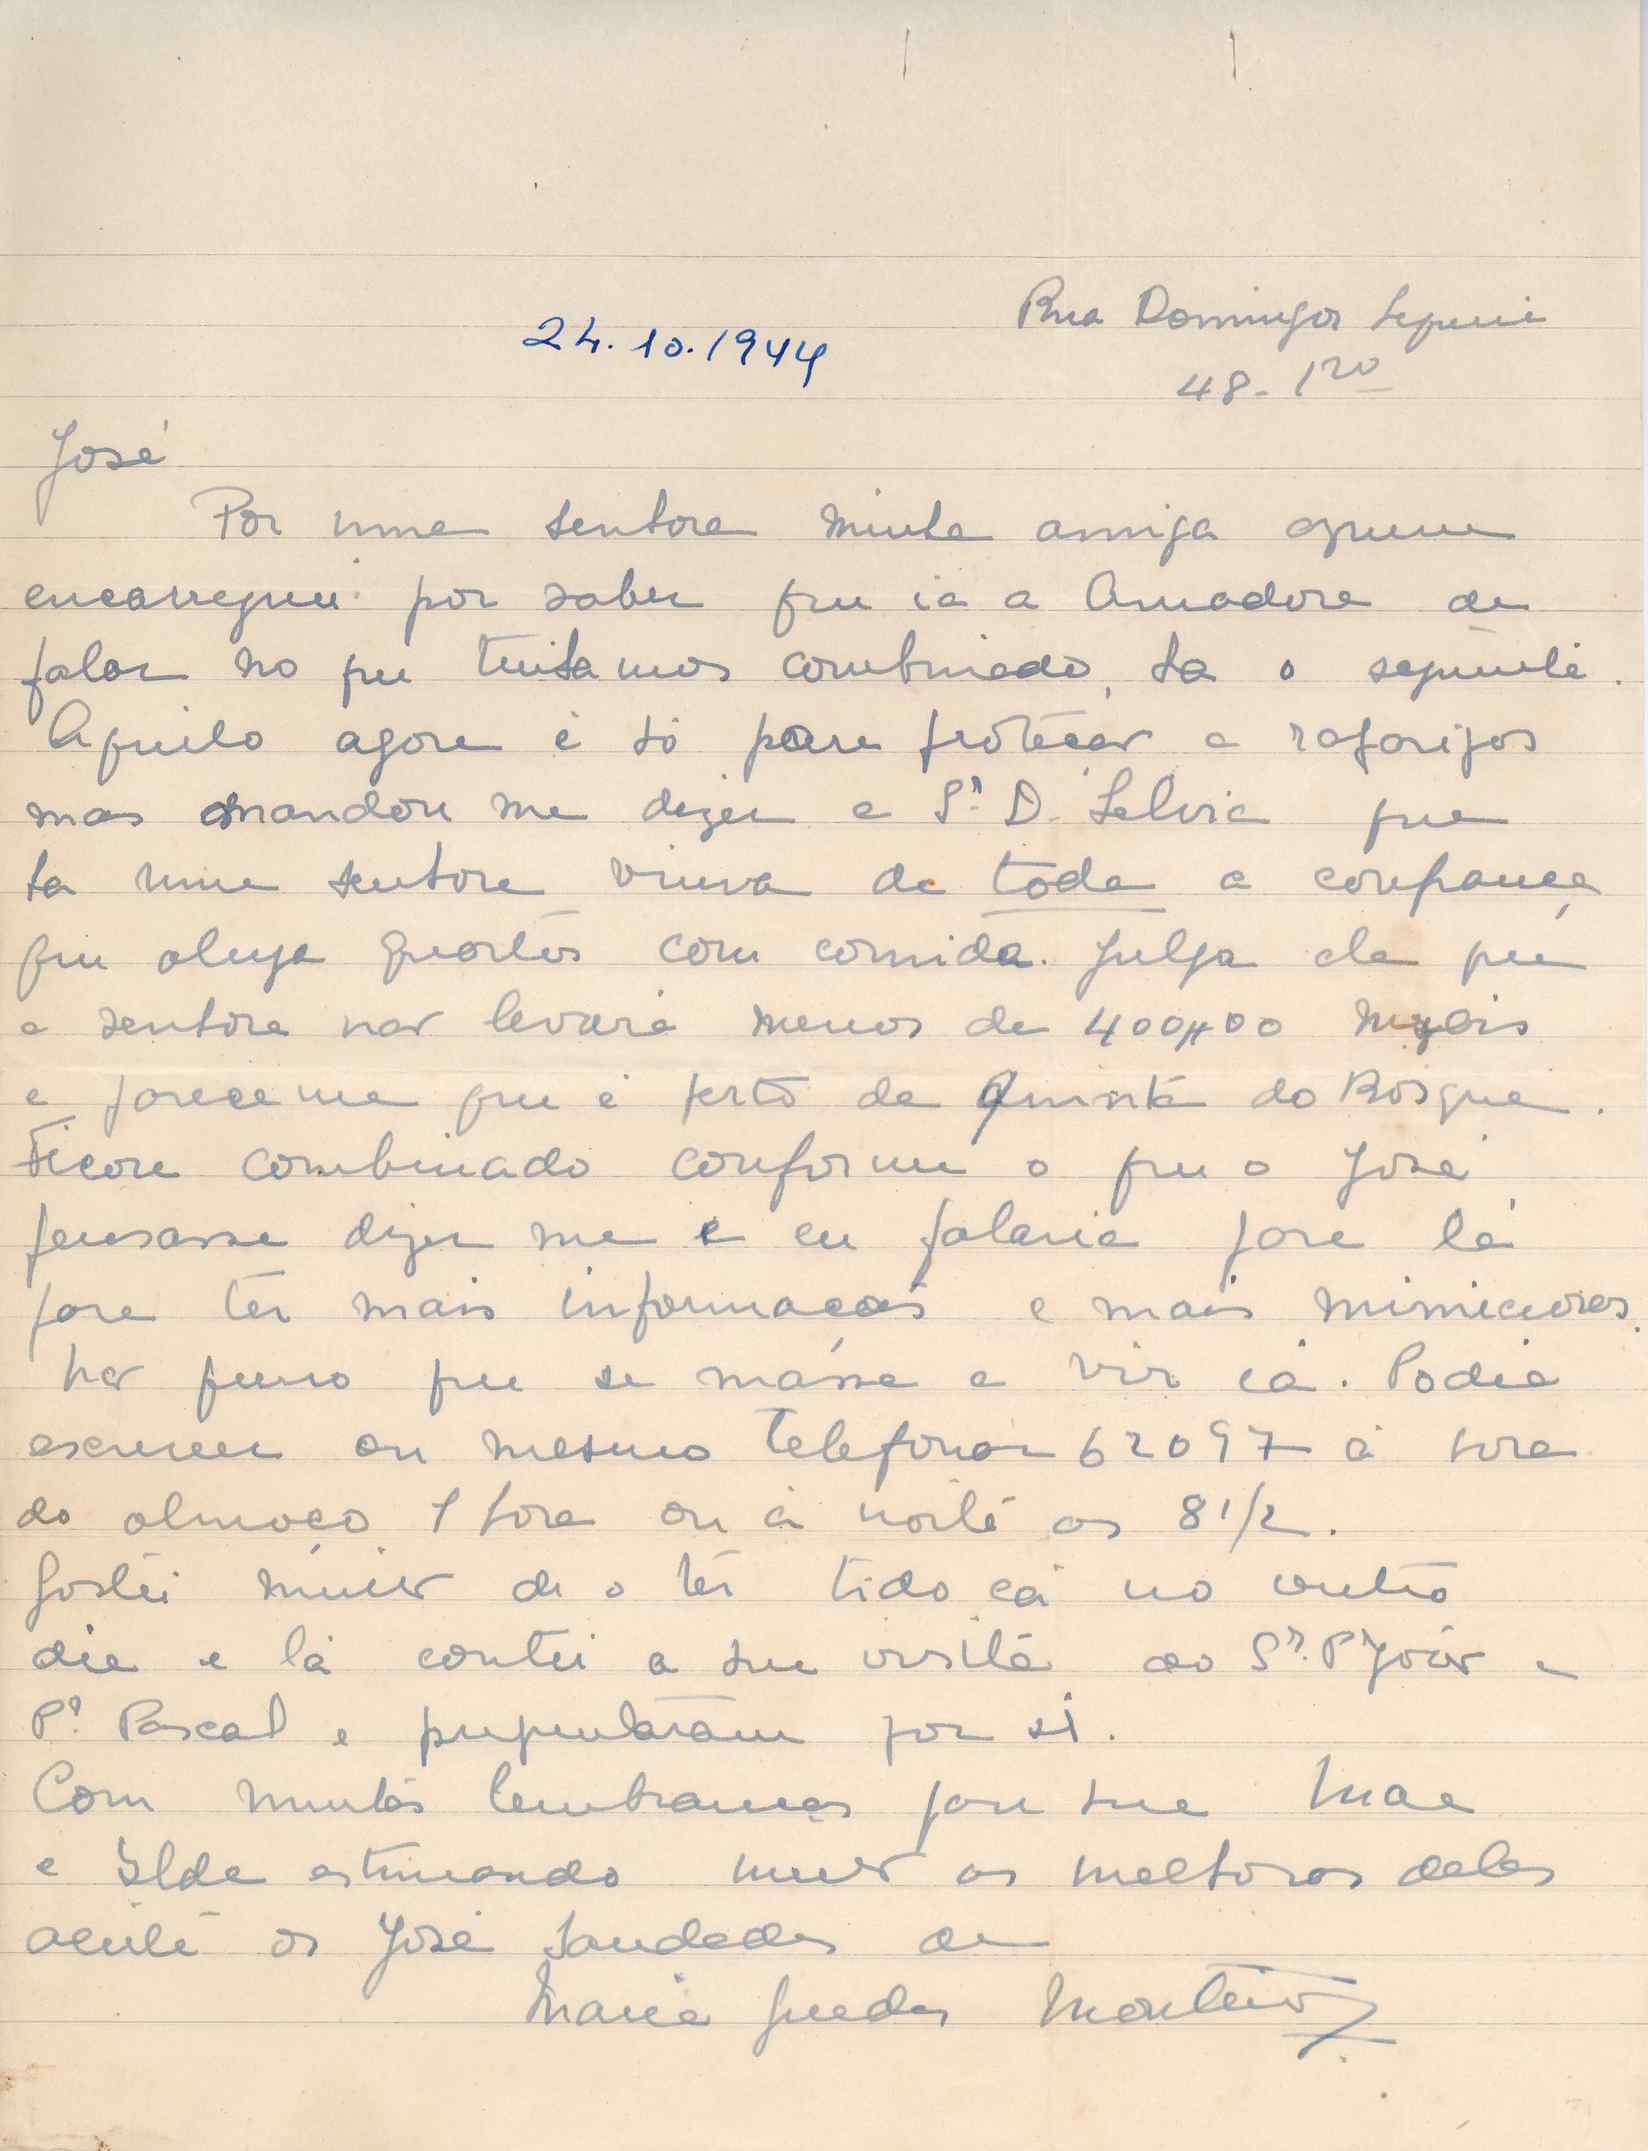 Rua Domingos Sequeira
24.10.1944
48-1º
José
Por uma senhora minha amiga a quem
encarreguei por saber que ia a Amadora de
falar no que tinhamos combinado, ha o seguinte.
Aquilo agora é só para proteção a raparigas
mas mandou me dizer a Sra. D. Silvia que
ha uma senhora viuva de toda a confiança
que aluga quartos com comida. Julga ela que
a senhora não levará menos de 400$00 mensais
e parece me que é perto da Quinta do Bosque.
Ficou combinado conforme o que o José
pensasse dizer me e eu falaria para lá
para ter mais informações e mais
Não quero que se masse a vir cá. Podia
escrever ou mesmo telefonar 62097 á hora
do almoço 1 hora ou á noite as 8 1/2.
Gostei muito de o ter tido cá no outro
dia e lá contei a sua visita ao Sr. Pe João e
Pe Pascal e preguntaram por si.
Com muitas lembranças para sua Mãe
e Ilda estimando muito as melhoras delas
aceite o José saudades de
Maria Guedes Monteiro